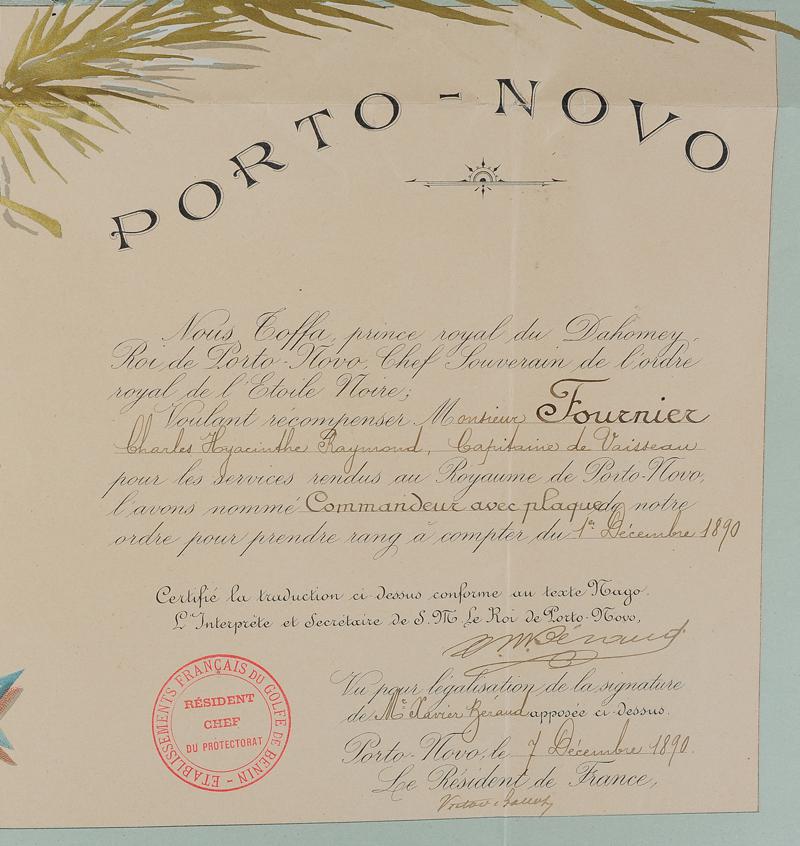 PORTO-NOVO
Nous Toffa, prince royal du Dahomey,
Roi de Porto-Novo, Chef Souverain de l'ordre
royal de l'Etoile Noire;
Voulant récompenser Monsieur Fournier
Charles Hyacinthe Raymond, Capitaine de Vaisseau
pour les services rendus au Royaume de Porto-Novo,
l'avons nommé Commandeur avec plaque de notre
ordre pour prendre rang à compter du 1er Décembre 1890
Certifié la traduction ci-dessus conforme au texte Nago.
L'Interprète et Secrétaire de S. M. Le Roi de Porto-Novo,
Vu pour légalisation de la signature
de Mr Xavier Béraud apposée ci-dessus.
Porto-Novo, le 7 Décembre 1890.
Le Résident de France,
ETABLISSEMENTS FRANÇAIS DU GOLFE DE BENIN
RÉSIDENT
CHEF
DU PROTECTORAT